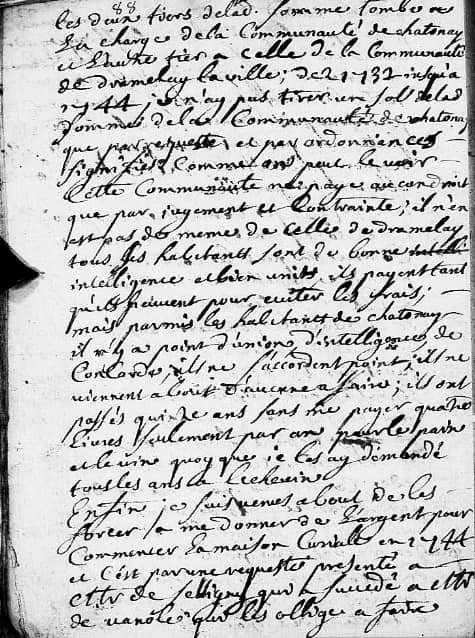 88
les deux tiers de lad. somme tombe a
La charge dela Communauté de chatonay
et L'autre tier a Celle de la Communauté
de dramelay la ville; de 1732 jusqu'a
1744, je n'ay pas tirer un sol de lad
somme dela Communauté de chatonay
que par requette et par ordonnences
signifiés, Comme on peut le voir
Cette Communauté ne paye aucun droit
que par jugement et Contrainte; il n'en
est pas de meme de Celle de dramelay
tous les habitants sont de bonne
intelligence et bien units, ils payent tant
qu'ils peuvent pour eviter les frais;
mais parmis les habitants de chatonay
il n'y a point d'union, d'intelligence, de
Concorde, ils ne s'accordent point, ils ne
viennent a bout d'aucune afaire; ils ont
passés quinze ans sans me payer quatre
Livres seulement par an pour le pain
et le vin quoy que je les ay demandé
tous les ans a
Enfin je suis venus a bout de les
forcer a me donner de L'argent pour
Commencer La maison Curialle en 1744
et C'est par une requeste presenté a
de qui a succédé a
de vanole qui les oblige a faire